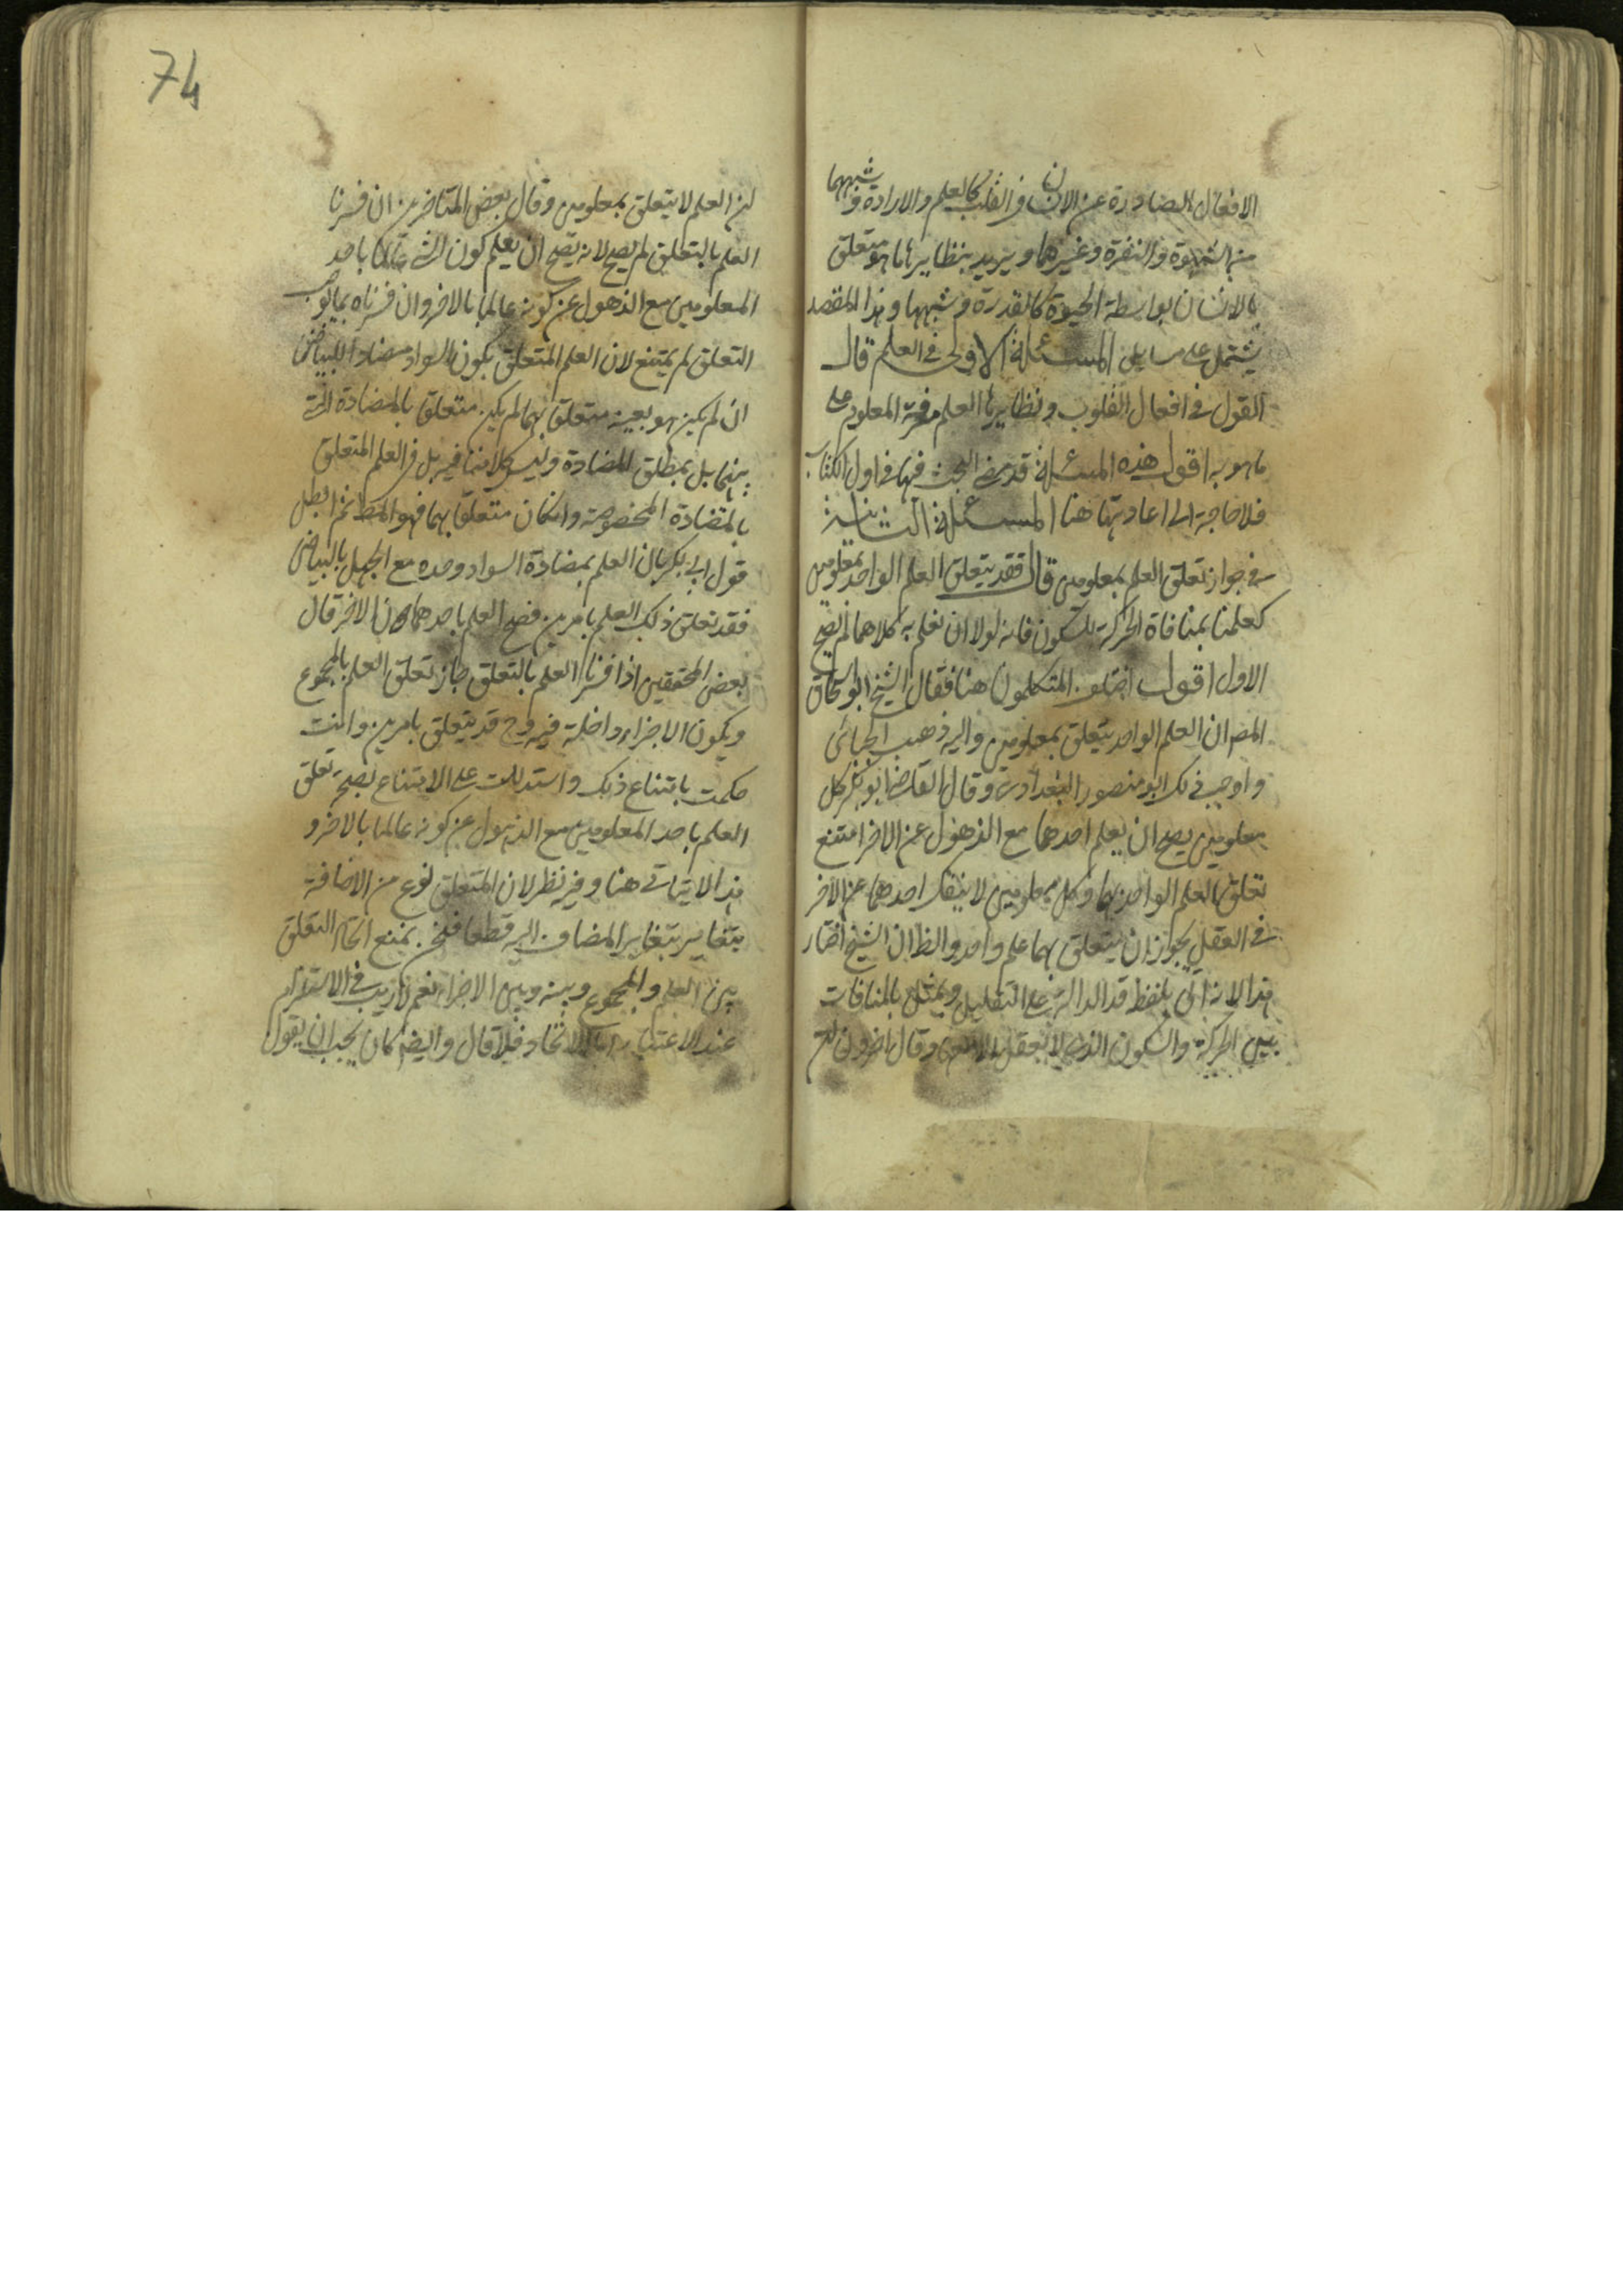 الافعال الصادرة عن الانسان في القلب كالعلم والارادة وشبههما
من الشهوة والنفرة وغيرهما ويريد بنظايرها ما هو متعلق
بالانسان بواسطة الحيوة كالقدرة وشبهها وهذا المقصد
يشتمل على مسايل المسئلة الاولى في العلم قال
القول في افعال القلوب ونظايرها العلم معرفة المعلوم على
ما هو به اقول هذه المسئلة قد مضى البحث فيها في اول الكتاب
فلا حاجة الى اعادتها هنا المسئلة الثانية
في جواز تعلق العلم بمعلومين قال فقد يتعلق العلم الواحد بمعلومين
كعلمنا بمنافاة الحركة للسكون فانه لولا ان نعلم به كلاهما لم يصح
الاول اقول اختلف المتكلمون هنا فقال الشيخ ابو اسحاق
المص ان العلم الواحد يتعلق بمعلومين واليه ذهب الجبائي
واوجب ذلك ابو منصور البغدادي وقال القاضي ابو بكر كل
معلومين يصح ان يعلم احدهما مع الذهول عن الاخر امتنع
تعلق العلم الواحد بهما وكل معلومين لا ينفك احدهما عن الاخر
في العقل يجوز ان يتعلق بهما علم واحد والظ ان الشيخ اختار
هذا لانه اتى بلفظ قد الدالة على التقليل ويمثل بالمنافات
بين الحركة والسكون الذي لا يعقل الا بهما وقال اخرون
ان العلم لا يتعلق بمعلومين وقال بعض المتاخرين ان فسرنا
العلم بالتعلق لم يصح لانه يصح ان يعلم كون الشي عالما باحد
المعلومين مع الذهول عن كونه عالما بالاخر وان فسرناه بما يوجب
التعلق لم يمتنع لان العلم المتعلق بكون السواد مضادا للبياض
ان لم يكن هو بعينه متعلق بهما لم يكن متعلق بالمضادة التي
بينهما بل بمطلق المضادة وليس كلامنا فيه بل في العلم المتعلق
بالمضادة المخصوصة وان كان متعلقا بهما فهو المط ثم ابطل
قول ابي بكر بان العلم بمضادة السواد وحده مع الجهل بالبياض
فقد تعلق ذلك العلم بامرين فصح العلم باحدهما دون الاخر قال
بعض المحققين اذا فسرنا العلم بالتعلق جاز تعلق العلم بالمجموع
ويكون الاجزاء داخلة فيه وح قد يتعلق بامرين وانت
حكمت بامتناع ذلك واستدللت على الامتناع بصحة تعلق
العلم باحد المعلومين مع الذهول عن كونه عالما بالاخر و
هذا لا يتاتى هنا وفيه نظر لان المتعلق نوع من الاضافة
يتغاير بتغاير المضاف اليه قطعا فنحن نمنع اتحاد التعلق
بين العلم والمجموع وبينه وبين الاجزاء نعم لا ريب في الاستلزام
عند الاعتبار اما الاتحاد فلا قال وايضا كان يجب ان يقول